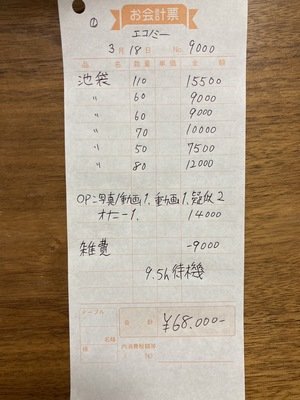 ①
お会計票
エコノミー
3月18日 No. 9000
品名 数量 単価 金額
池袋 110 15500
〃 60 9000
〃 60 9000
〃 70 10000
〃 50 7500
〃 80 12000
OP:写真/動画1、動画1、疑似2
オナニー1、 14000
雑費 -9000
9.5h待機
テーブル
名
様
合計 ¥68.000-
内消費税額等